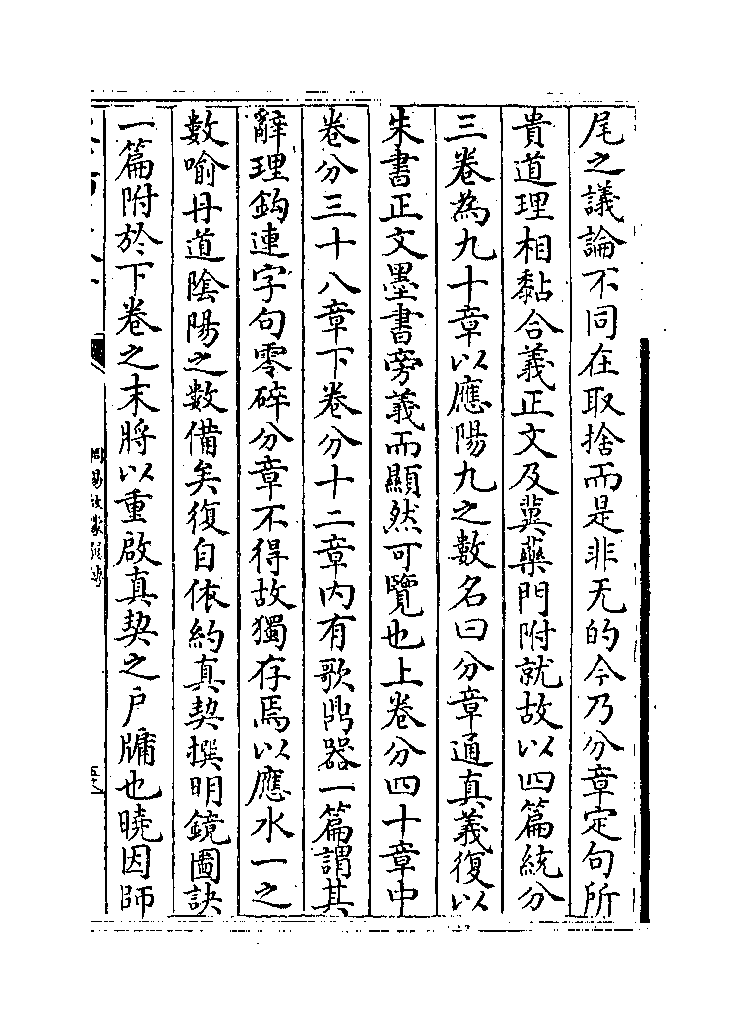 尾之議論不同在取捨而是非无的今乃分章定句所
貴道理相黏合義正文及冀藥門附就故以四篇統分
三卷為九十章以應陽九之數名曰分章通真義復以
朱書正文墨書旁義而顯然可覽也上卷分四十章中
卷分三十八章下卷分十二章内有歌鼎器一篇謂其
辭理鈎連字句零碎分章不得故獨存焉以應水一之
數喻丹道陰陽之數備矣復自依約真契撰明鏡圖訣
一篇附於下卷之末將以重啟真契之户牖也曉因師